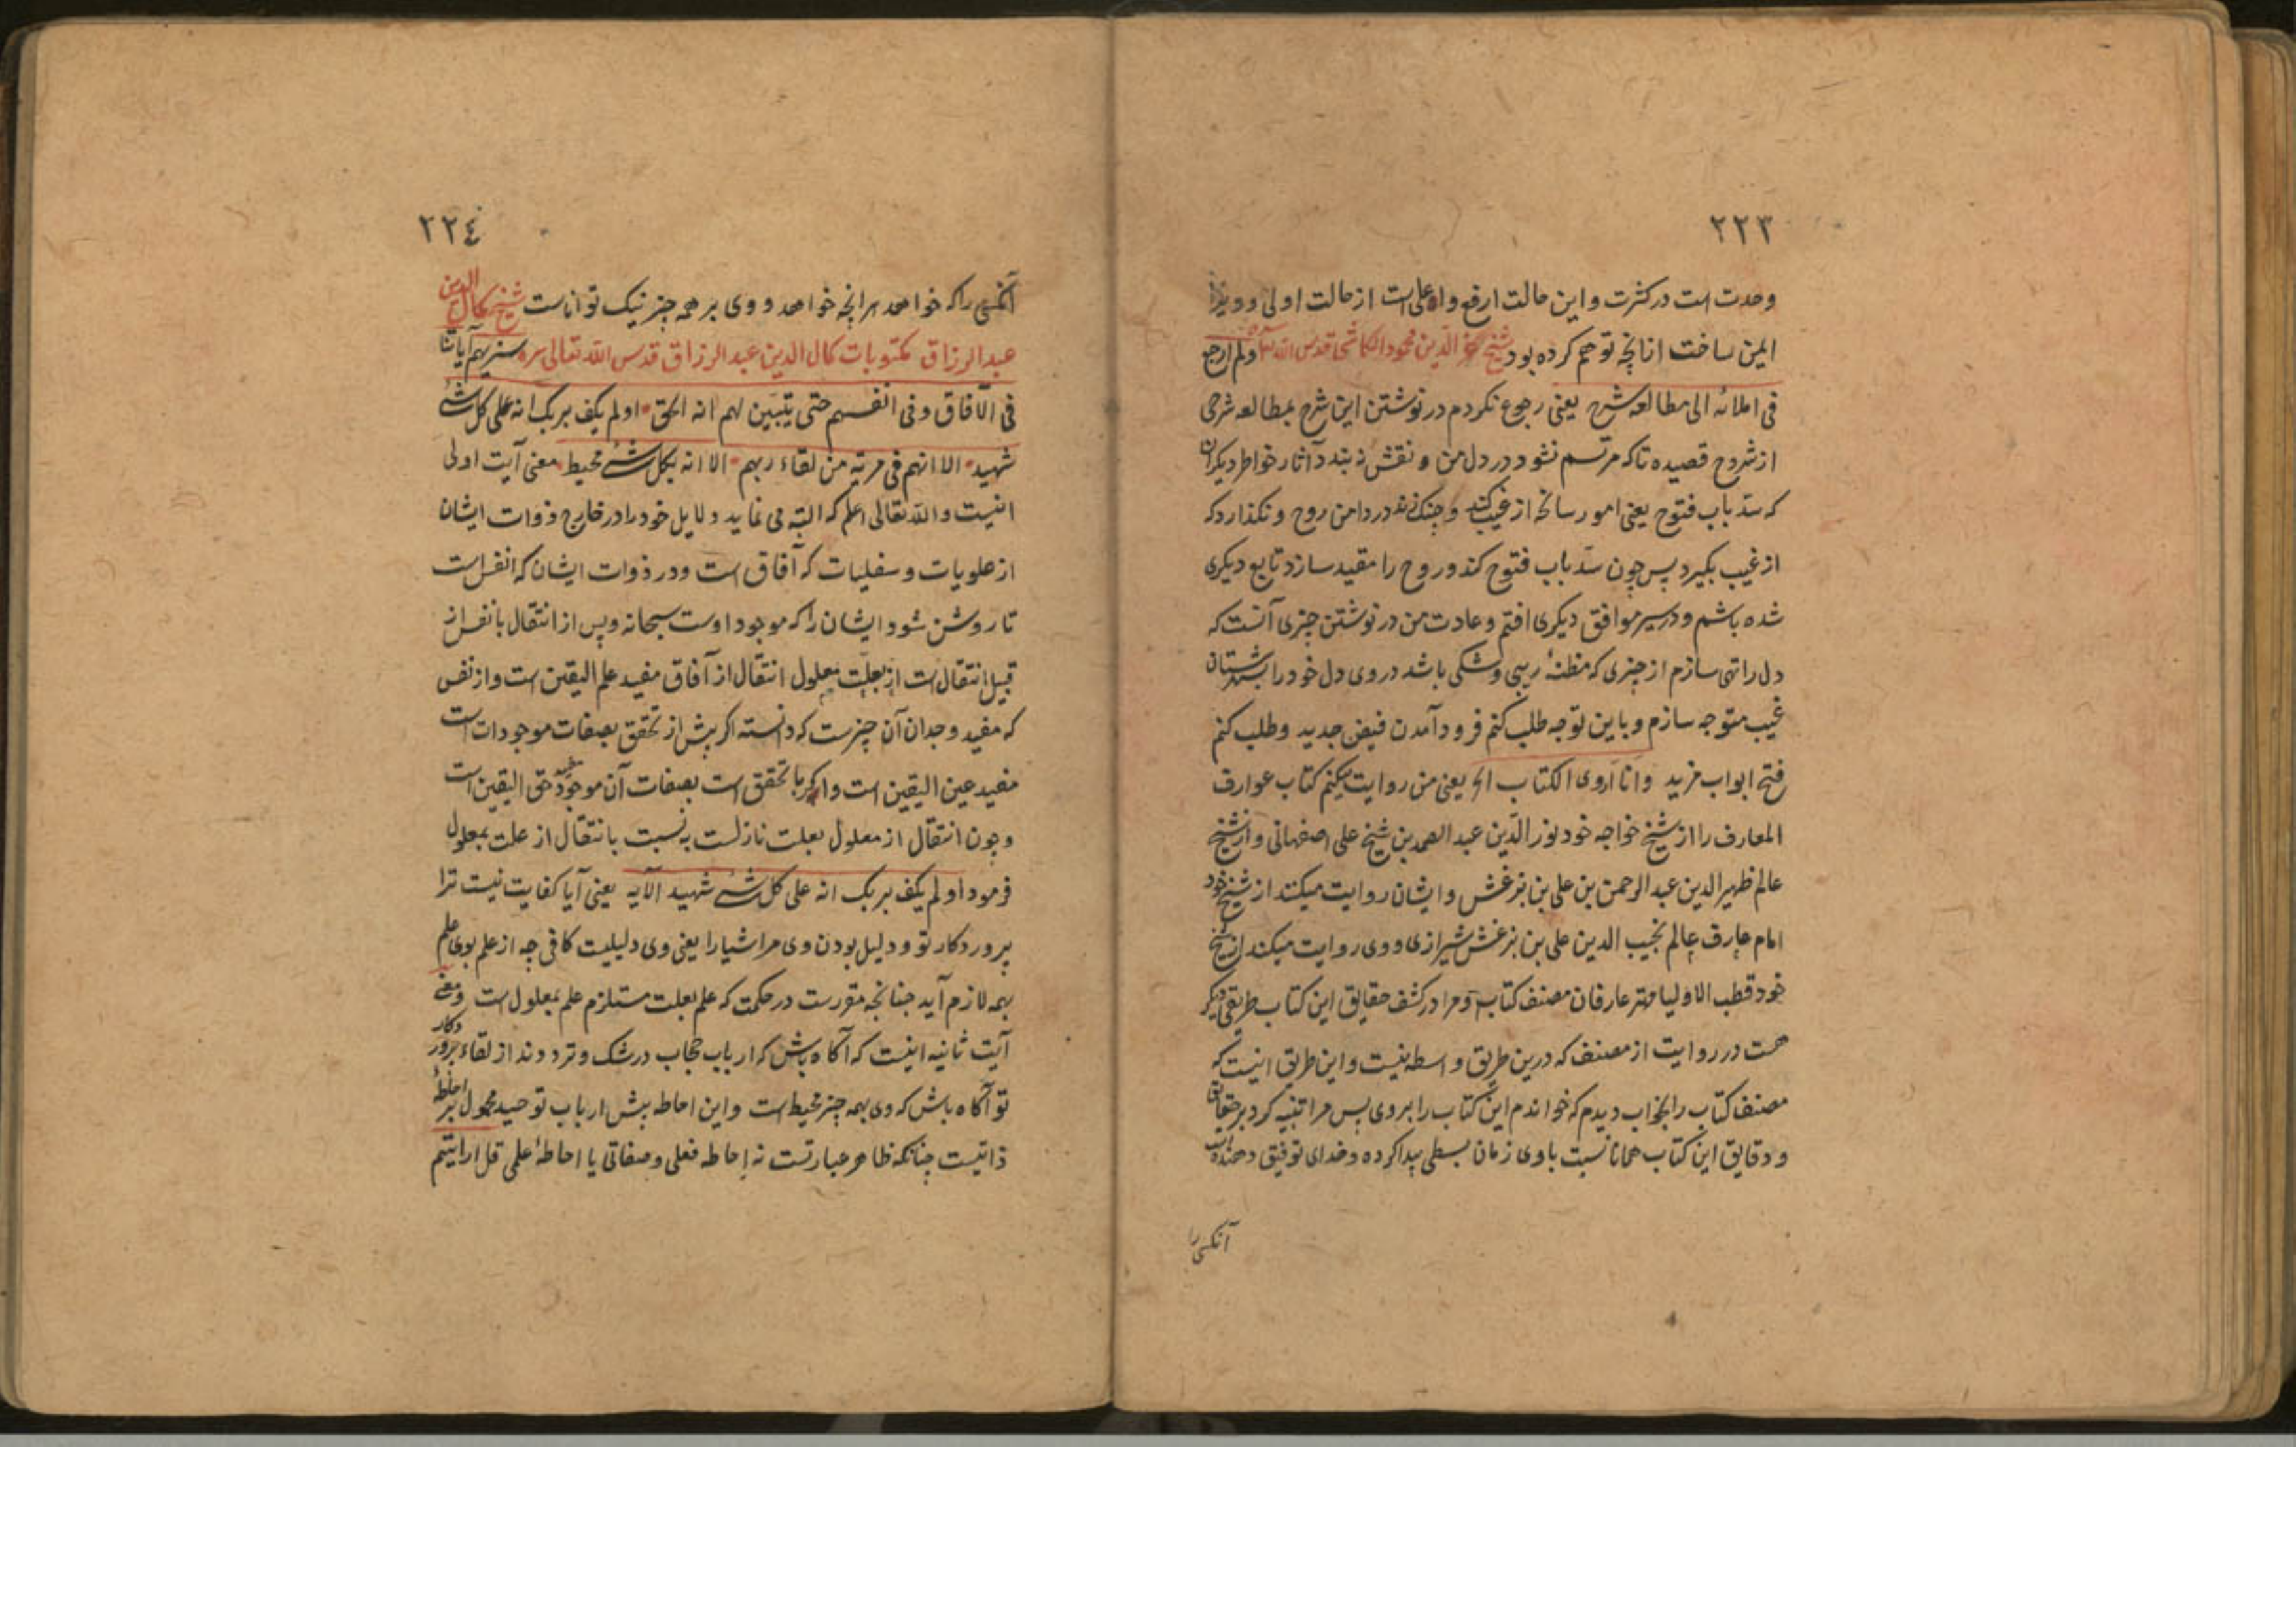 ٢٢٣
وحدت است در کثرت و این حالت ارفع و اعلی است از حالت اولی و ویرا
ایمن ساخت از انچه توهم کرده بود شیخ عز الدین محمود الکاشی قدس الله سره ولم ارجع
فی املائه الی مطالعه شرح یعنی رجوع نکردم در نوشتن این شرح بمطالعه شرحی
از شروح قصیده تا که مرتسم نشود در دل من و نقش نه بندد آثار خواطر دیکران
که سد باب فتوح یعنی امور سانحه از غیب کند و چنک زند در دامن روح و نکذارد که
از غیب بکیرد پس چون سد باب فتوح کند و روح را مقید سازد تابع دیکری
شده باشم و در سیر موافق دیکری افتم و عادت من در نوشتن چیزی آنست که
دل را تهی سازم از چیزی که مظنه ریبی و شکی باشد در وی دل خود را بشهرستان
غیب متوجه سازم و باین توجه طلب کنم فرود آمدن فیض جدید و طلب کنم
فتح ابواب مزید وانا اروی الکتاب الخ یعنی من روایت میکنم کتاب عوارف
المعارف را از شیخ خواجه خود نور الدین عبد الصمد بن شیخ علی اصفهانی و از شیخ
عالم ظهیر الدین عبد الرحمن بن علی بن بزغش و ایشان روایت میکنند از شیخ خود
امام عارف عالم نجیب الدین علی بن بزغش شیرازی و وی روایت میکند از شیخ
خود قطب الاولیا مهتر عارفان مصنف کتاب و مرا در کشف حقایق این کتاب طریقی دیکر
هست در روایت از مصنف که درین طریق واسطه نیست و این طریق اینست که
مصنف کتاب را بخواب دیدم که خواندم این کتاب را بر وی پس مرا تنبیه کرد بر حقایق
و دقایق این کتاب همانا نسبت با وی زمان بسطی پیدا کرده و خدای توفیق دهنده است
آنکس را
٢٢٤
آنکس را که خواهد هر انچه خواهد و وی بر همه چیز نیک تواناست شیخ کمال الدین
عبد الرزاق مکتوبات کمال الدین عبد الرزاق قدس الله تعالی سره سنریهم آیاتنا
فی الآفاق وفی انفسهم حتی یتبین لهم انه الحق اولم یکف بربک انه علی کل شئ
شهید الا انهم فی مریة من لقاء ربهم الا انه بکل شئ محیط معنی آیت اولی
اینست والله تعالی اعلم که البته می نماید دلایل خود را در خارج ذوات ایشان
از علویات و سفلیات که آفاق است و در ذوات ایشان که انفس است
تا روشن شود ایشان را که موجود اوست سبحانه و پس از انتقال بانفس از
قبیل انتقال است از بعلت معلول انتقال از آفاق مفید علم الیقین است و از نفس
که مفید وجدان آن چیزست که دانسته اکر پیش از تحقق بصفات موجودات است
مفید عین الیقین است و اکر با تحقق است بصفات آن موجود مفید حق الیقین است
و چون انتقال از معلول بعلت نازلست به نسبت بانتقال از علت بمعلول
فرمود اولم یکف بربک انه علی کل شئ شهید الآیه یعنی آیا کفایت نیست ترا
پروردکار تو و دلیل بودن وی مر اشیا را یعنی وی دلیلیست کافی چه از علم بوی علم
بهمه لازم آید چنانچه مقررست در حکمت که علم بعلت مستلزم علم بمعلول است و معنی
آیت ثانیه اینست که آکاه باش که ارباب حجاب در شک و تردد ند از لقاء پروردکار
تو آکاه باش که وی بهمه چیز محیط است و این احاطه پیش ارباب توحید محمول بر احاطهٔ
ذاتیست چنانکه ظاهر عبارتست نه احاطه فعلی و صفاتی یا احاطهٔ علمی قل ارایتم